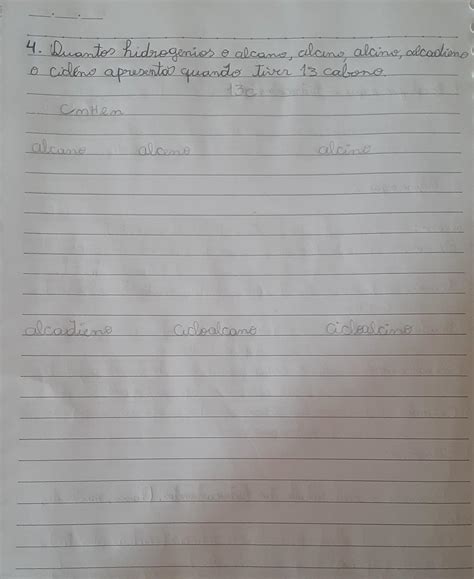 4. Quantos hidrogenios o alcano, alceno, alcino, alcadieno
o cicleno apresentar quando tiver 13 cabono.
13c
CmHen
alcano alceno alcino
alcadieno cicloalcano cicloalcino